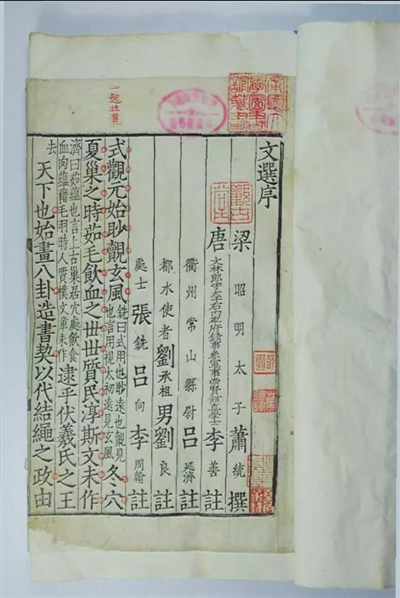 文選序
梁昭明太子蕭統撰
唐文林郎守太子右內率府錄事參軍事崇賢館直學士李善註
衢州常山縣尉呂延濟註
都水使者劉承祖男劉良註
處士張銑呂向李周翰註
式觀元始眇觀玄風銑曰式用也眇遠也觀見也言用視太初遠見玄風冬穴
夏巢之時茹毛飲血之世世質民淳斯文未作
濟曰茹蘊也言上古巢居穴處飲食血肉蘊藉毛羽時人質樸文章未作逮乎伏羲氏之王
去天下也始畫八卦造書契以代結繩之政由